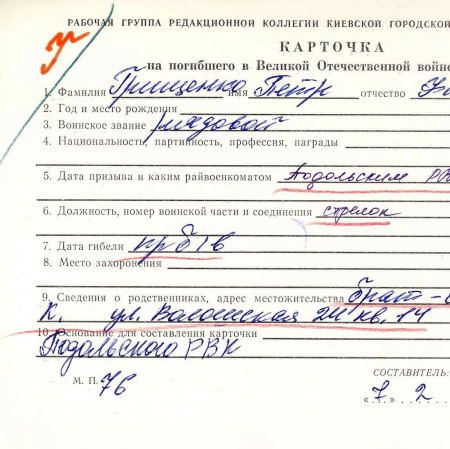 РАБОЧАЯ ГРУППА РЕДАКЦИОННОЙ КОЛЛЕГИИ КИЕВСКОЙ ГОРОДСКОЙ
КАРТОЧКА
на погибшего в Великой Отечественной войне
1. Фамилия Грищенко имя Петр отчество
2. Год и место рождения
3. Воинское звание рядовой
4. Национальность, партийность, профессия, награды
5. Дата призыва и каким райвоенкоматом Подольским РВ
6. Должность, номер воинской части и соединения стрелок
7. Дата гибели пр б/в
8. Место захоронения
9. Сведения о родственниках, адрес местожительства брат-
К. ул. Волошская 24 кв. 14
10. Основание для составления карточки
Подольского РВК
СОСТАВИТЕЛЬ:
М. П. 76
«7» 2